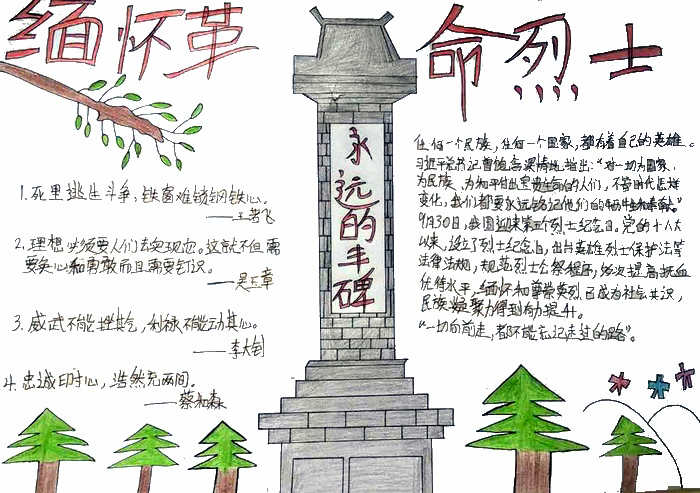 缅怀革
命烈士
永远的丰碑
1.死里逃生斗争,铁窗难锁钢铁心。
——王若飞
2.理想 需要人们去实现 。这就不但需
要 心和勇敢而且需要 识。
——吴玉章
3.威武不能 其气,利禄不能动其心。
——李大钊
4.忠诚印 心,浩然充两间。
——蔡和森
任何一个民族,任何一个国家,都有着自己的英雄。
习近平总书记曾饱含深情地指出:“对一切为国家、
为民族、为和平付出宝贵生命的人们,不管时代怎样
变化,我们都要永远铭记他们的牺牲和奉献”
9月30日,我国迎来第 个烈士纪念日。党的十八大
以来,设立了烈士纪念日,出台英雄烈士保护法等
法律法规,规范烈士公祭程序,每次提高抚恤
优待水平,缅怀和尊崇英烈已成为社会共识,
民族凝聚力得到有力提升。
“一切向前走,都不能忘记走过的路”。